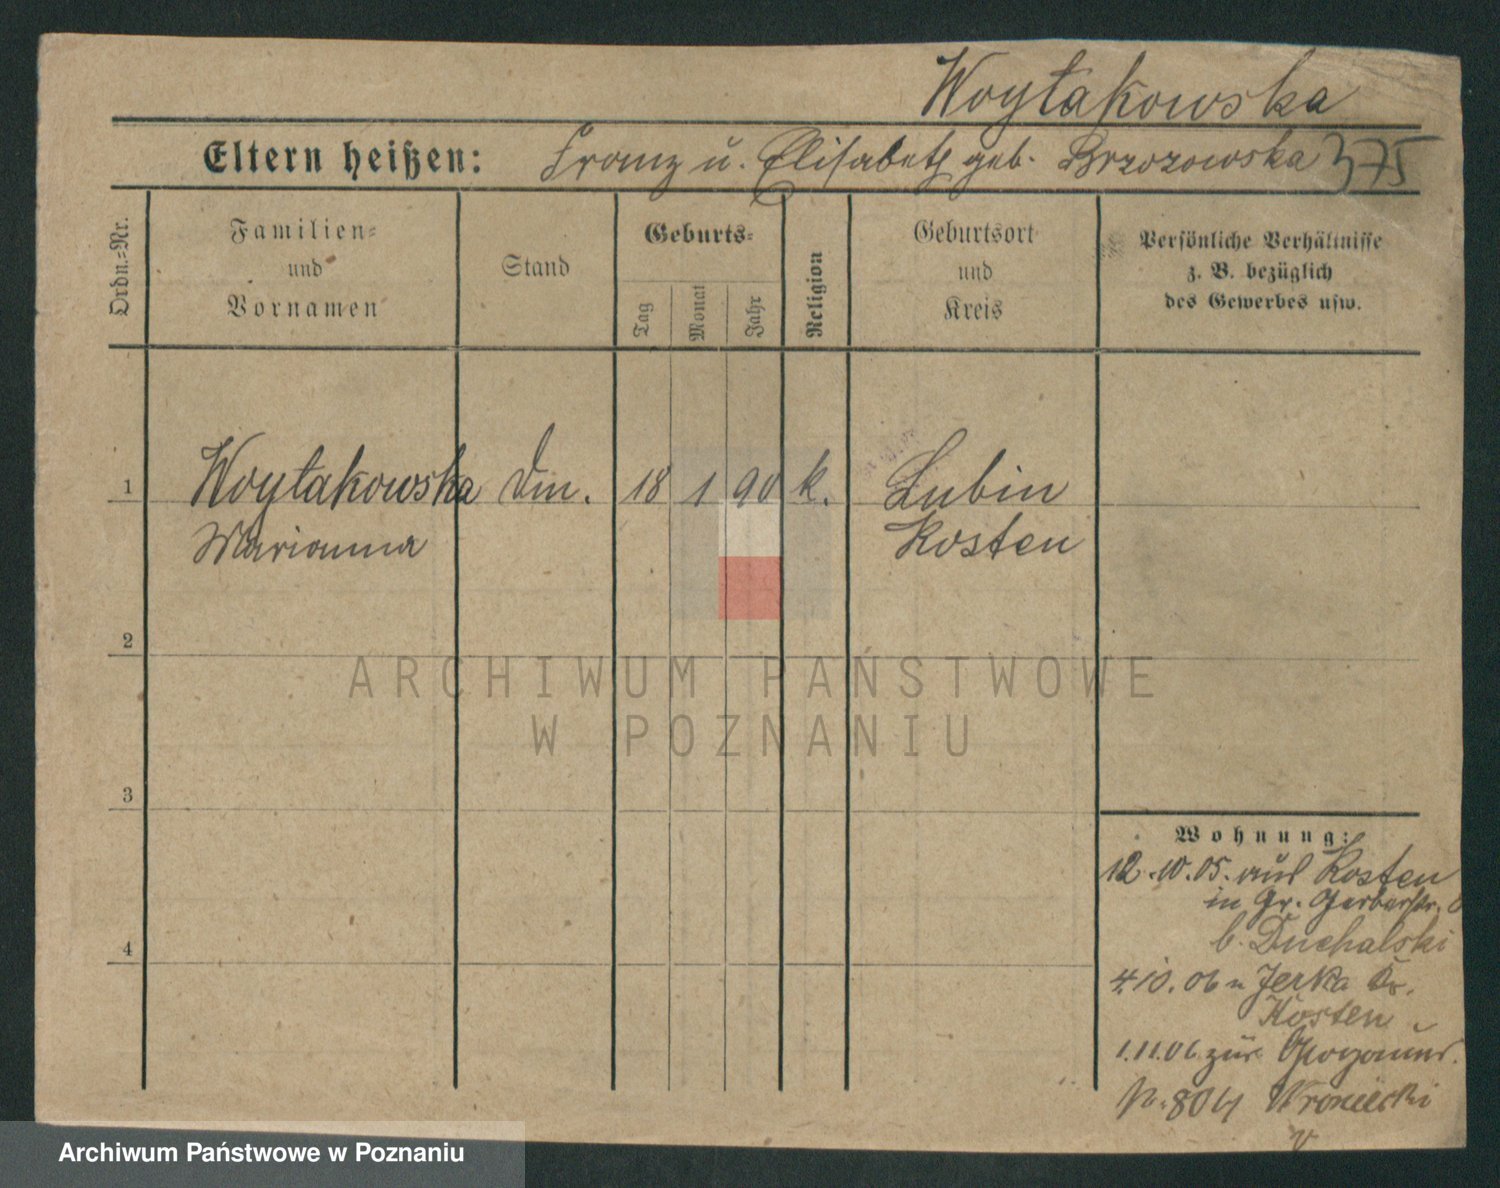 Woytakowska
Eltern heißen: Franz u. Elisabeth geb. Brzozowska 375
Ordn.-Nr.
Familien-
und
Vornamen
Stand
Geburts-
Tag
Monat
Jahr
Religion
Geburtsort
und
Kreis
Persönliche Verhältnisse
z. B. bezüglich
des Gewerbes usw.
1 Woytakowska Dm. 18 1 90 k. Lubin
Marianna Kosten
2
3
4
Wohnung:
12.10.05. aus Kosten
in Gr. Gerberstr.
b. Duchalski
4.10.06 n Jerka Kr.
Kosten
1.11.06 zur
N. 804
ARCHIWUM PAŃSTWOWE
W POZNANIU
Archiwum Państwowe w Poznaniu